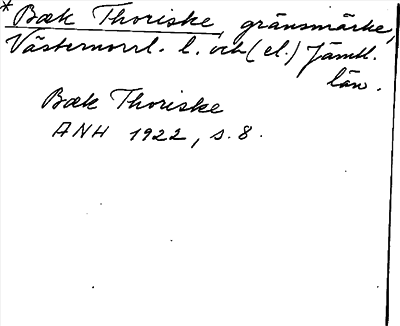 * Bæk Thoriske, gränsmärke,
Västernorrl. l. och (el.) Jämtl.
län.
Bæk Thoriske
ANH 1922, s. 8.